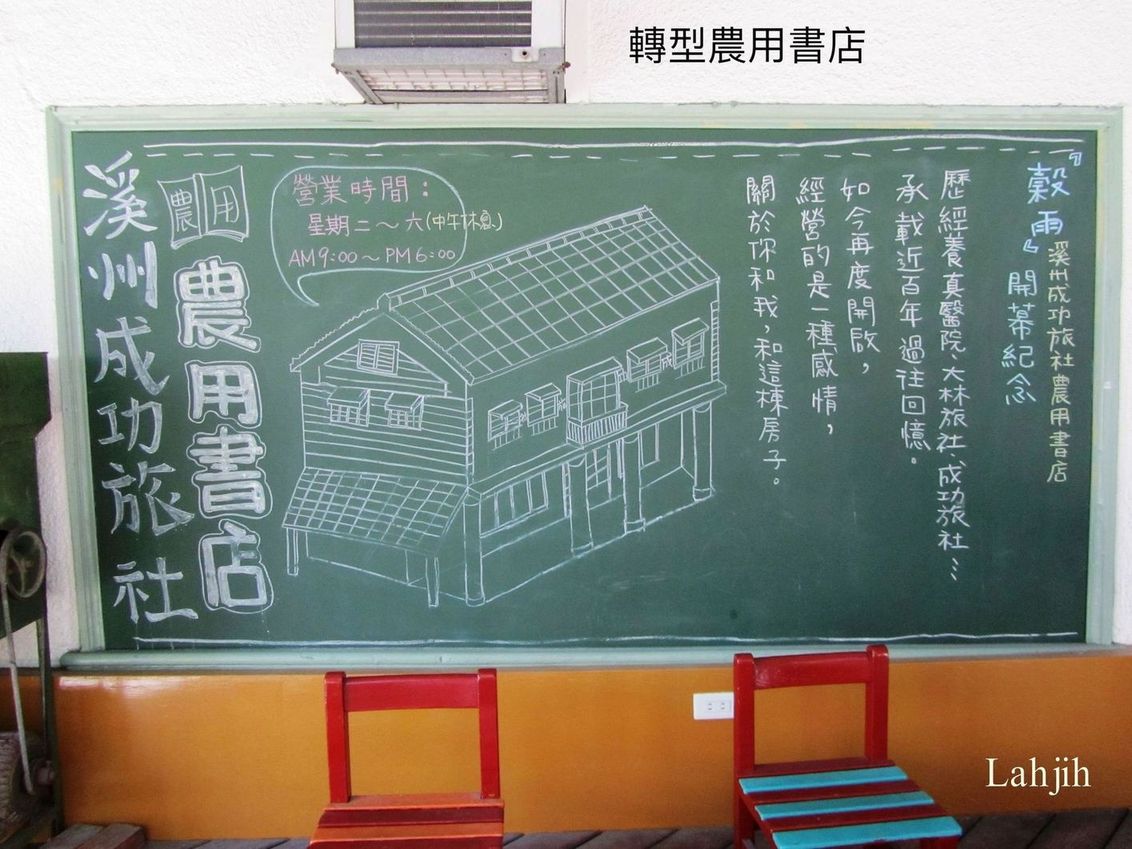 轉型農用書店
『穀雨』開幕紀念
溪州成功旅社農用書店
歷經養真醫院、大林旅社、成功旅社…
承載近百年過往回憶。
如今再度開啟，
經營的是一種感情，
關於你和我，和這棟房子。
營業時間：
星期二～六(中午休息)
AM9:00～PM6:00
農用
農用書店
溪州成功旅社
Lahjih